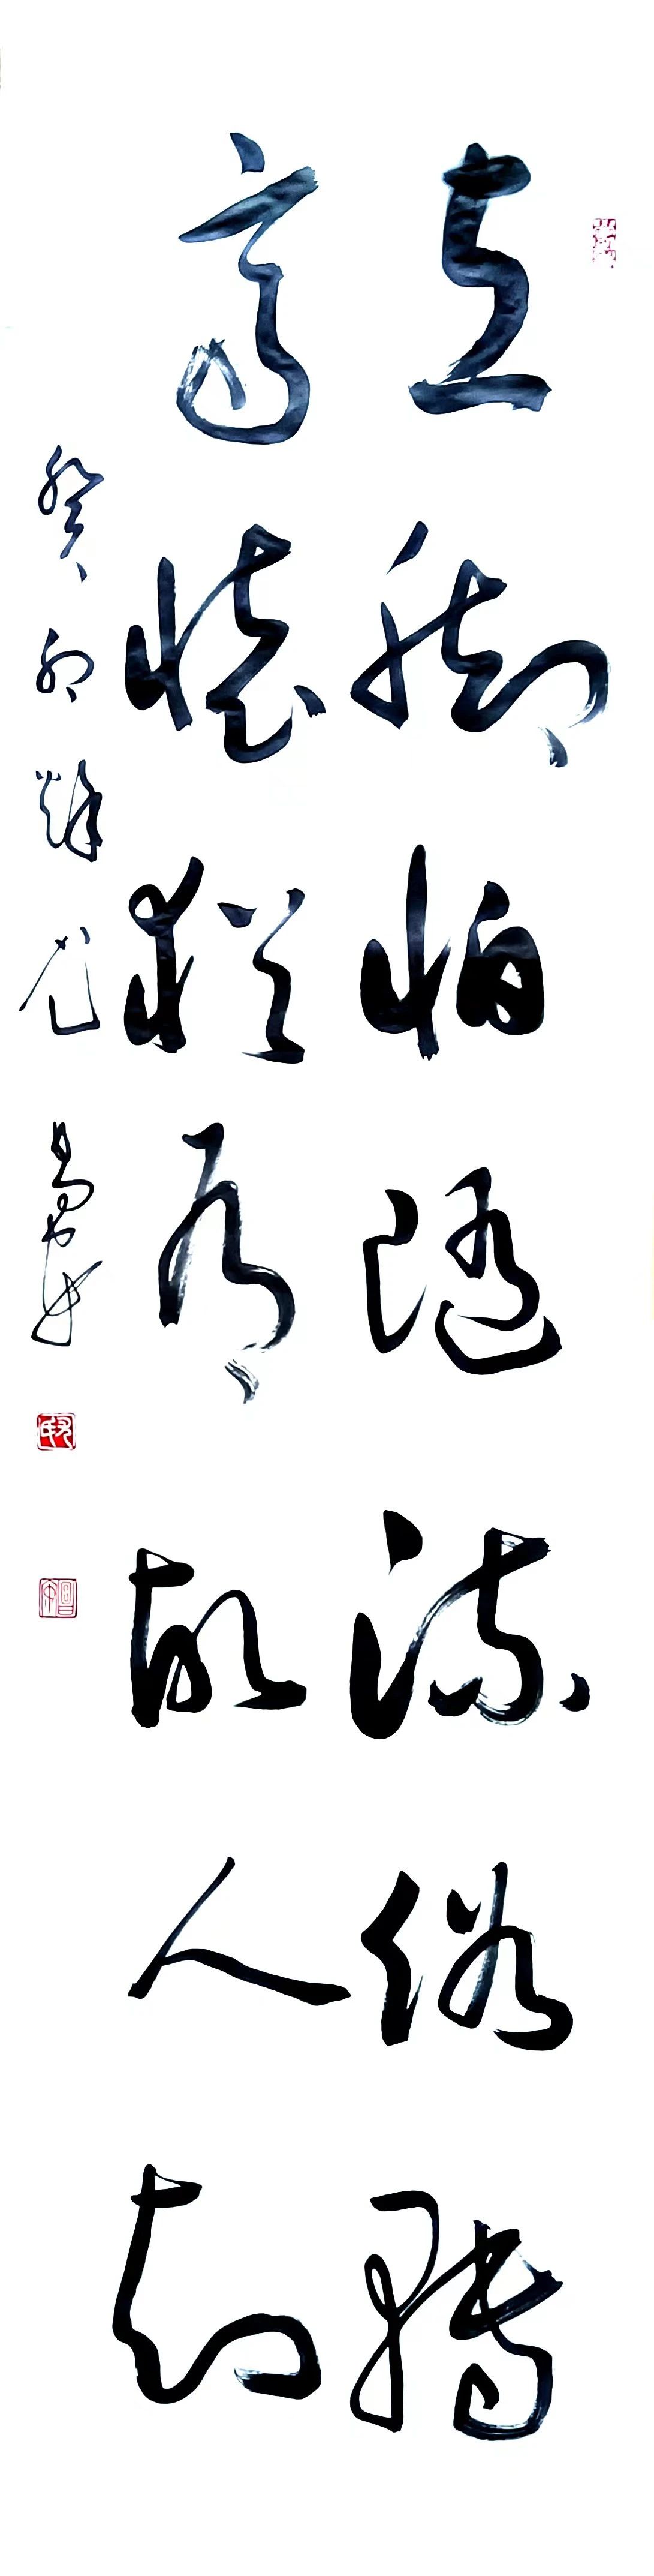 立脚怕随流俗转
高怀犹有故人知
癸卯